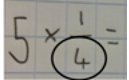 5 × 1/4 =